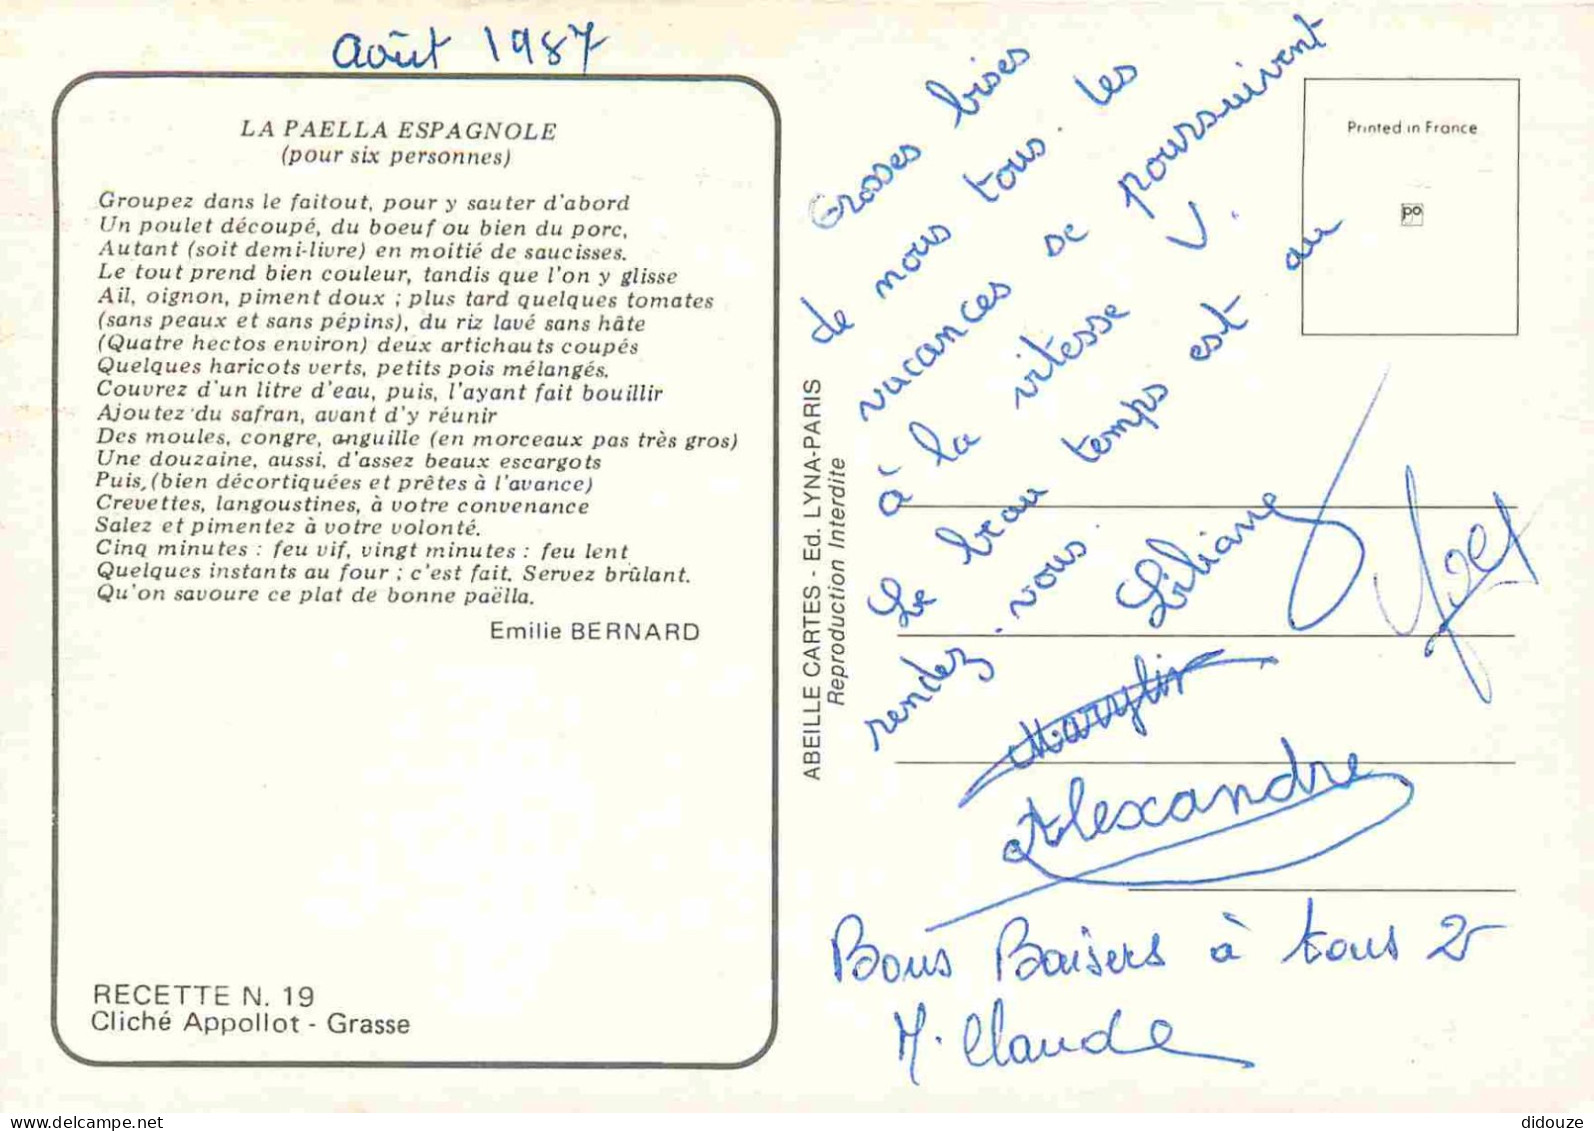 Août 1987
LA PAELLA ESPAGNOLE
(pour six personnes)
Groupez dans le faitout, pour y sauter d'abord
Un poulet découpé, du boeuf ou bien du porc,
Autant (soit demi-livre) en moitié de saucisses.
Le tout prend bien couleur, tandis que l'on y glisse
Ail, oignon, piment doux ; plus tard quelques tomates
(sans peaux et sans pépins), du riz lavé sans hâte
(Quatre hectos environ) deux artichauts coupés
Quelques haricots verts, petits pois mélangés.
Couvrez d'un litre d'eau, puis, l'ayant fait bouillir
Ajoutez du safran, avant d'y réunir
Des moules, congre, anguille (en morceaux pas très gros)
Une douzaine, aussi, d'assez beaux escargots
Puis, (bien décortiquées et prêtes à l'avance)
Crevettes, langoustines, à votre convenance
Salez et pimentez à votre volonté.
Cinq minutes : feu vif, vingt minutes : feu lent
Quelques instants au four ; c'est fait. Servez brûlant.
Qu'on savoure ce plat de bonne paëlla.
Emilie BERNARD
RECETTE N. 19
Cliché Appollot - Grasse
ABEILLE CARTES - Ed. LYNA-PARIS
Reproduction Interdite
Printed in France
po
Grosses bises
de nous tous. Les
vacances se poursuivent
à la vitesse V.
Le beau temps est au
rendez-vous.
Liliane
Marylin
Alexandre
Bons Baisers à tous 2
M. Claude
didouze @ delcampe.net